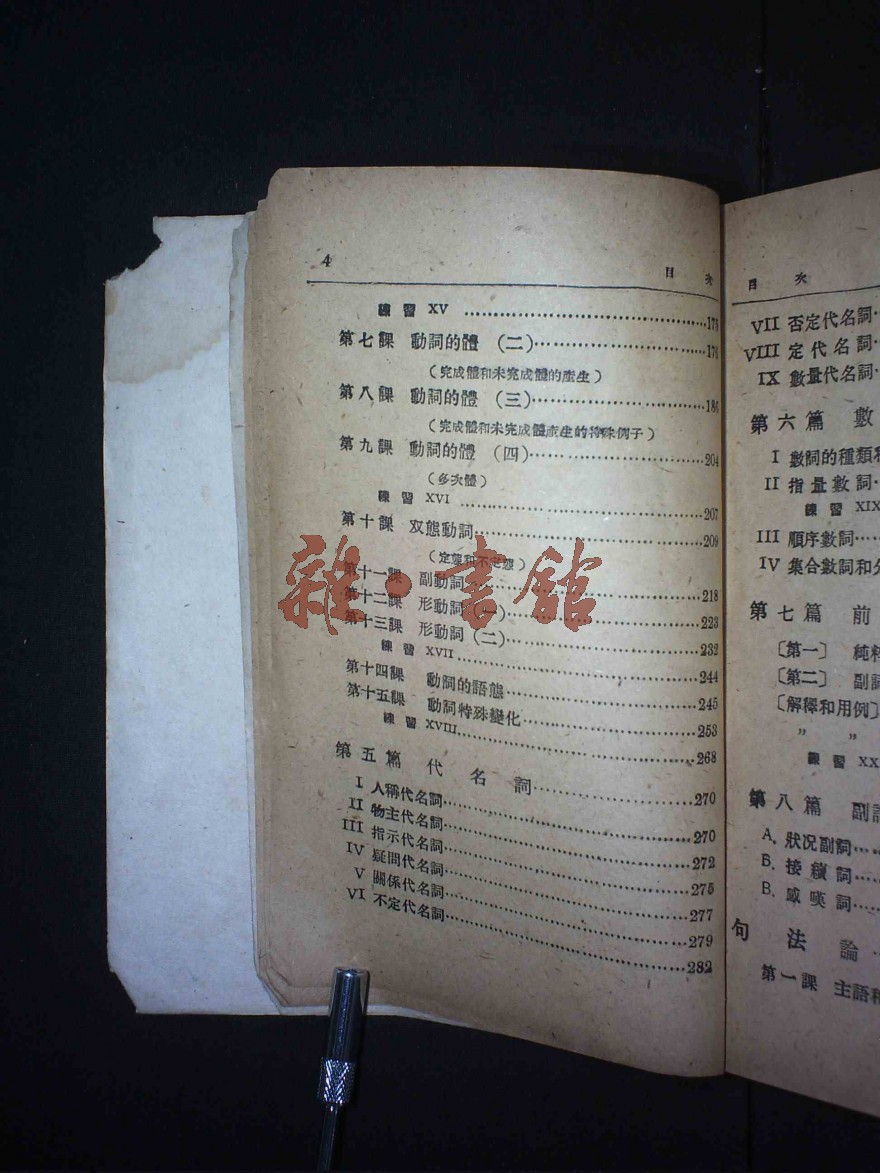 4 目 次
練習 XV ……175
第七課 動詞的體 (二)……176
(完成體和未完成體的產生)
第八課 動詞的體 (三)……186
(完成體和未完成體產生的特殊例子)
第九課 動詞的體 (四)……204
(多次體)
練習 XVI ……207
第十課 双態動詞……209
(定態和不定態)
第十一課 副動詞……218
第十二課 形動詞 (一)……223
第十三課 形動詞 (二)……232
練習 XVII……244
第十四課 動詞的語態……245
第十五課 動詞特殊變化……253
練習 XVIII……268
第五篇 代名詞……270
I 人稱代名詞……270
II 物主代名詞……272
III 指示代名詞……275
IV 疑問代名詞……277
V 關係代名詞……279
VI 不定代名詞……282
雜·書館
目 次
VII 否定代名詞
VIII 定代名詞
IX 數量代名詞
第六篇 數
I 數詞的種類和
II 指量數詞
練習 XIX
III 順序數詞……
IV 集合數詞和分
第七篇 前
〔第一〕 純粹
〔第二〕 副詞
〔解釋和用例〕
" "
練習 XX
第八篇 副詞
A. 狀况副詞……
Б. 接續詞……
В. 感嘆詞……
句法論
第一課 主語和